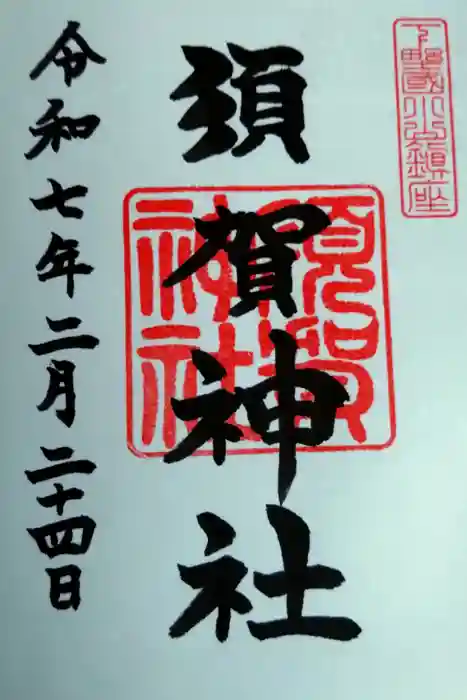 下野國小山鎮座
須賀神社
須賀神社
令和七年二月二十四日